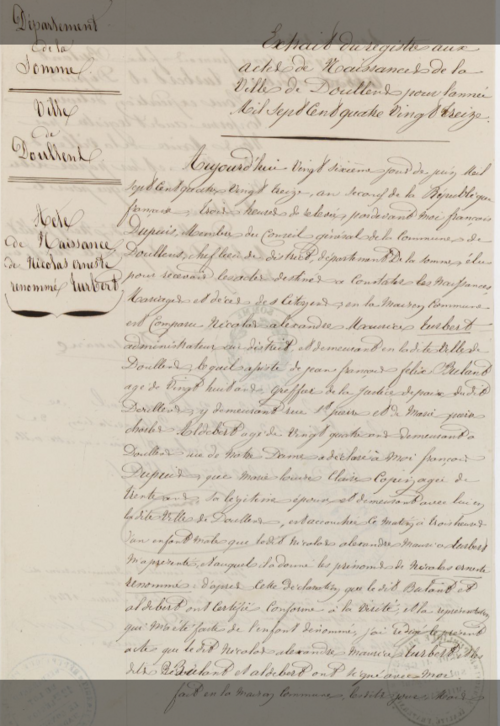 Département
de la
Somme
Ville
de
Doullens
Acte
de Naissance
de Nicolas erneste
renommé Turbert
Extrait du registre aux
actes de Naissances de la
Ville de Doullens pour l'année
Mil Sept Cent quatre Vingt treize.
Aujourd'hui Vingt sixième jour de juin Mil
Sept Cent quatre Vingt treize, an second de la République
française, trois heures de relevée, pardevant moi françois
Dupuis, Membre du Conseil général de la Commune de
Doullens, chef lieu de district, département De la Somme, élu
pour recevoir les actes destinés a Constater les Naissances
Mariages et décès des Citoyens, en la Maison Commune
est Comparu Nicolas alexandre Maurice Turbert
administrateur du district et demeurant en ladite Ville de
Doullens, lequel assisté de jean françois félix
agé de Vingt huit ans, Greffier de la Justice de paix dudit
Doullens, y demeurant rue St pierre et de Marie
Aldebert agé de Vingt quatre ans demeurant a
Doullens rue de Notre Dame a déclaré à Moi françois
Dupuis, que Marie louise Claire agée de
trente ans, Sa légitime épouse et demeurant avec lui en
ladite Ville de Doullens, est accouchée Ce Matin à trois heures
d'un enfant Male que ledit Nicolas alexandre Maurice Turbert
M'a présenté, et auquel il a donné les prénoms de Nicolas erneste
renommé. d'après Cette déclaration que ledit et
aldebert ont Certifié Conforme à la Vérité, et la représentation
qui M'a été faite de l'enfant dénommé, j'ai rédigé le présent
acte que ledit Nicolas alexandre Maurice Turbert,
et aldebert ont Signé avec Moi
fait en la Maison Commune, les dits jour, Mois